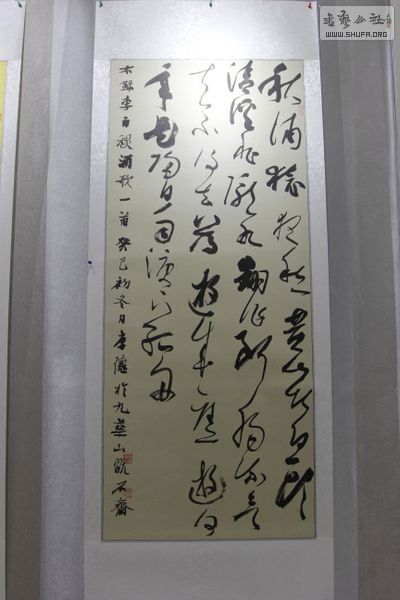 書藝公社
WWW.SHUFA.ORG
秋浦猿夜愁黄山堪白頭
清溪非隴水翻作断腸流欲
去不得去薄遊成久遊何
年是歸日雨淚下孤舟
錄李白秋浦歌一首癸巳初冬月李於九華山石齋